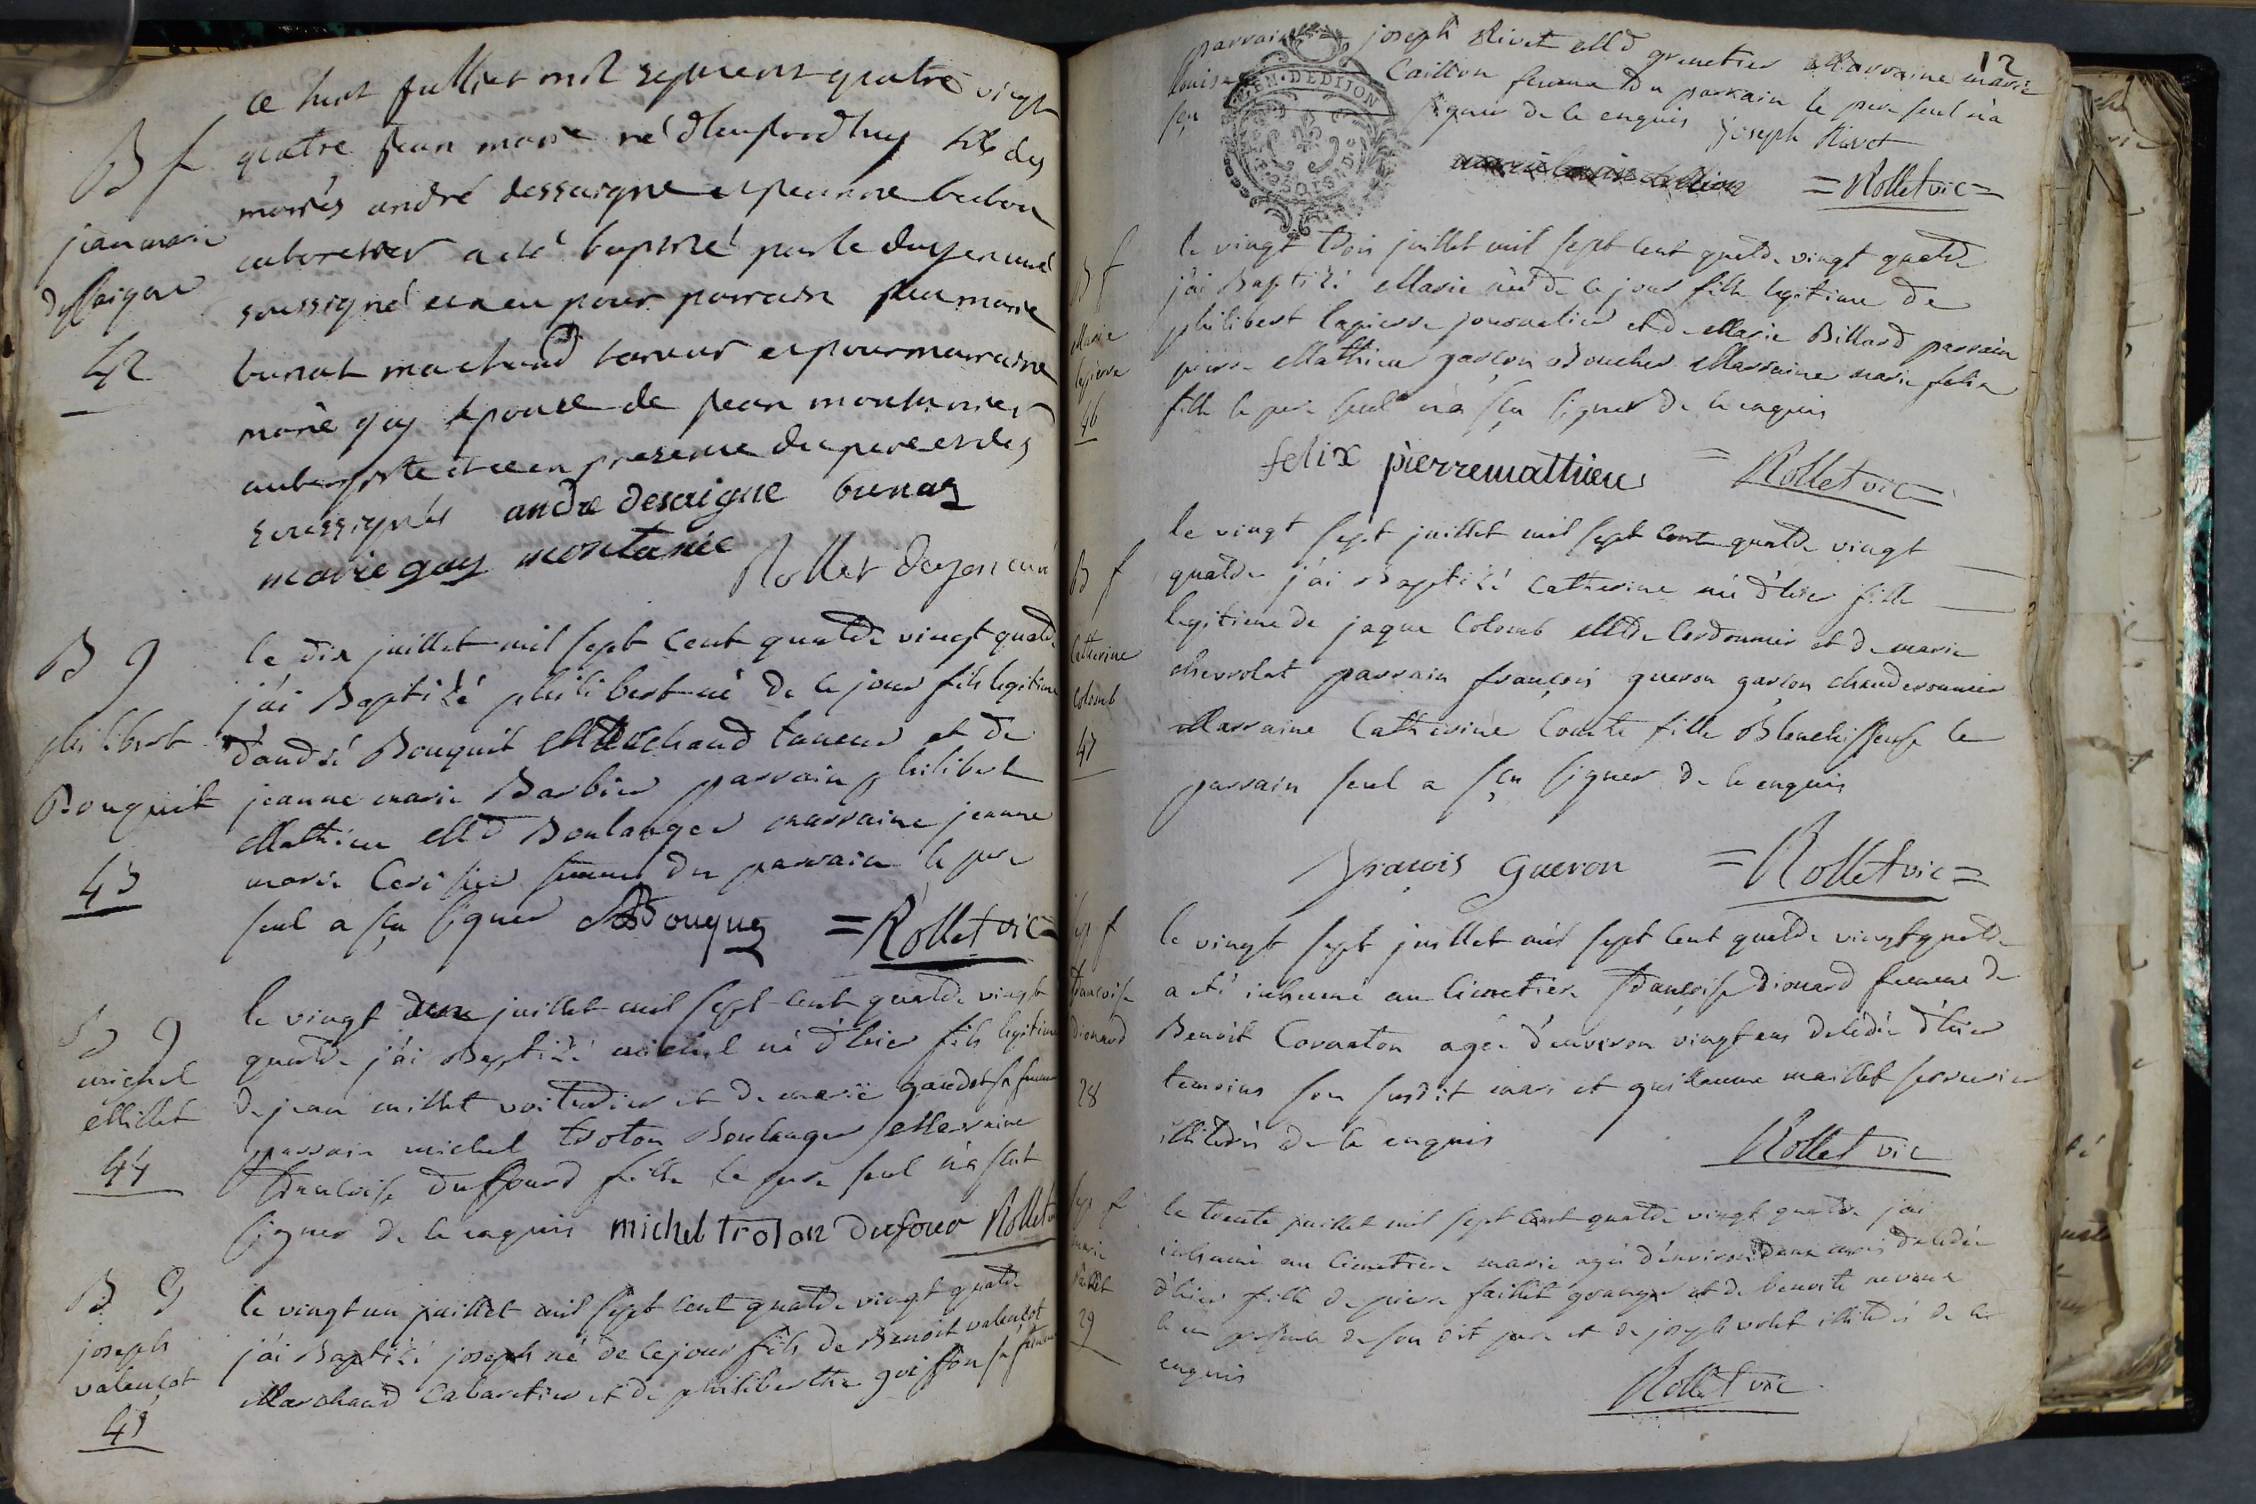 ce huit juilliet mil sepcent quatre vingt
B f quatre jean marie né d'aujourdhuy fils des
mariés andré dessaigne et jeanne bubon
jean marie cabaretier a été baptisé par le doyen curé
dessaigne soussigné et a eu pour parrain jean marie
42 bunot marchand taneur et pour marraine
marie guy epouse de jean montanier
aubergiste et ce en presence du pere et des
soussignés andre desaigne bunot
marie guy montanié Rollet doyen curé
B g le dix juillet mil sept cent quatre vingt quatre
j'ai Baptisé philibert né de ce jour fils legitime
philibert d'andré Bouquit Marchand taneur et de
Bouquit jeanne marie Barbier parrain philibert
Mathieu Md Boulanger marraine jeanne
43 marie Cerisier femme du parrain le pere
seul a sçu signer Bouquet =Rollet vic=
le vingt deux juillet mil sept cent quatre vingt
B g quatre j'ai Baptisé michel né d'hier fils legitime
michel de jean millet voiturier et de marie gaudet sa femme
Millet parrain michel Troton Boulanger Marraine
44 francoise Duffourd fille le pere seul n'a sçut
signer de ce enquis michel troton dufour Rollet
B g le vingt un juillet mil sept cent quatre vingt quatre
joseph j'ai Baptisé joseph né de ce jour fils de Benoit valençot
valençot Marchand Cabaretier et de philiberthe goisson sa femme
45
12
parrain joseph Rivet Md grenetier Marraine marie
Louise Caillon femme du parrain le pere seul n'a
sçu signer de ce enquis joseph Rivet
marie louise caillon =Rollet vic=
GEN. DE DIJON
B f le vingt trois juillet mil sept cent quatre vingt quatre
j'ai Baptisé Marie née de ce jour fille legitime de
Marie philibert lapierre journalier et de Marie Billard parrain
lapierre pierre Mathieu garçon Boucher Marraine marie felix
46 fille le pere seul n'a sçu signer de ce enquis
felix pierre mathieu =Rollet vic=
le vingt sept juillet mil sept cent quatre vingt
B f quatre j'ai Baptisé Catherine née d'hier fille
Catherine legitime de jaque Colomb Md Cordonnier et de marie
Colomb chevrolat parrain françois gueron garçon chauderonnier
47 Marraine Catherine Comte fille Blanchisseuse le
parrain seul a sçu signer de ce enquis
francois Gueron =Rollet vic=
sep f le vingt sept juillet mil sept cent quatre vingt quatre
francoise a eté inhumé au Cimetiere francoise Dionard femme de
Dionard Benoit Coranton agée d'environ vingt ans decedée d'hier
28 temoins son susdit mari et guillaume maillet serrurier
illitérés de ce enquis Rollet vic
sep f le trente juillet mil sept cent quatre vingt quatre j'ai
marie inhumé au Cimetiere marie agée d'environ deux mois decedée
faillet d'hier fille de pierre faillet granger et de benoite
29 ce en presence de son dit pere et de joseph volet illitérés de ce
enquis Rollet vic